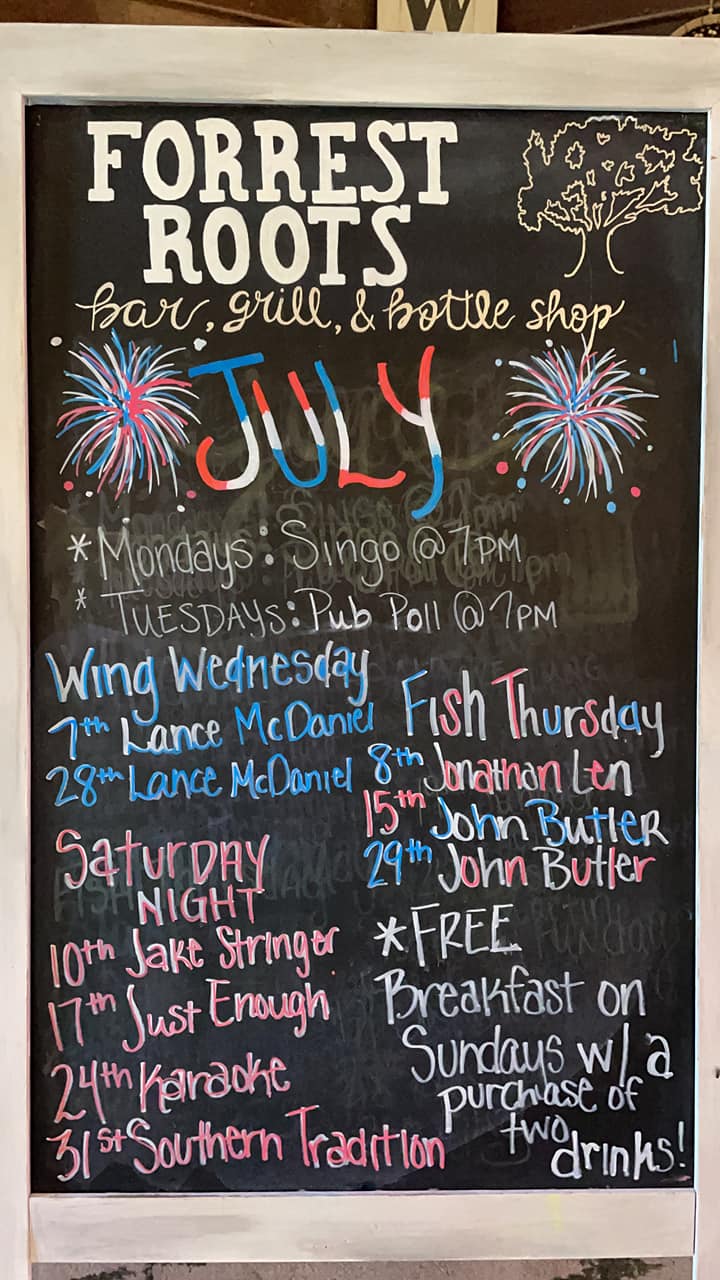 W
FORREST
ROOTS
bar, grill, & bottle shop
JULY
*Mondays: Singo @ 7PM
* TUESDAYS: Pub Poll @ 7PM
Wing Wednesday
7th Lance McDaniel
28th Lance McDaniel
Fish Thursday
8th Jonathan Len
15th John Butler
29th John Butler
Saturday
NIGHT
10th Jake Stringer
17th Just Enough
24th Karaoke
31st Southern Tradition
*FREE
Breakfast on
Sundays w/ a
purchase of
two
drinks!